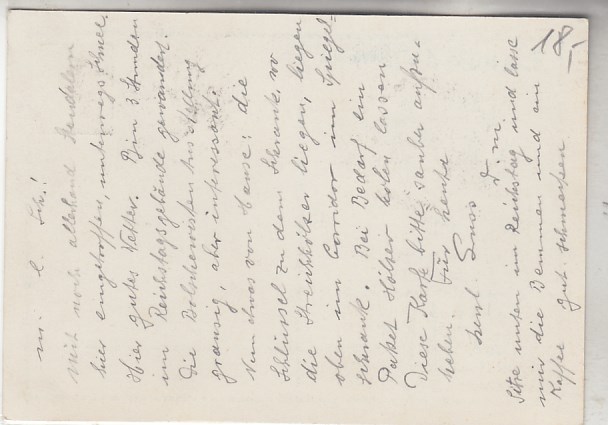 m. l. Lu!
Mit noch allerhand Stendalern
hier eingetroffen, unterwegs Schnee.
Hier gutes Wetter. Bin 3 Stunden
im Reichstagsgebäude gewandert.
Die Bolschewisten Ausstellung
grausig, aber interessant.
Nun etwas von Hause: die
Schlüssel zu dem Schrank, wo
die Streichhölzer liegen, liegen
oben im Corridor im Spiegel-
schrank. Bei Bedarf ein
Paket Hölzer holen lassen
Diese Karte bitte sauber aufzu-
heben. Für heute
herzl. Gruss
D. m.
Sitze unten im Reichstag und lasse
mir die Bemmen und ein
Kaffee gut schmecken
18